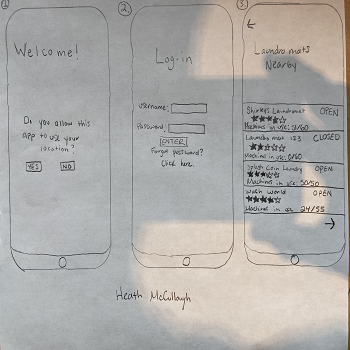 ①
Welcome!
Do you allow this
app to use your
location?
YES NO
②
Log-in
username:
Password:
ENTER
Forgot password?
Click here.
③
←
Laundromats
Nearby
Shirley's Laundromat OPEN
Machines in use: 31/60
Laundromat 123 CLOSED
Machines in use: 0/60
Splash Coin Laundry OPEN
Machines in use: 50/50
Wash World OPEN
Machines in use: 24/55
→
Heath McCullagh